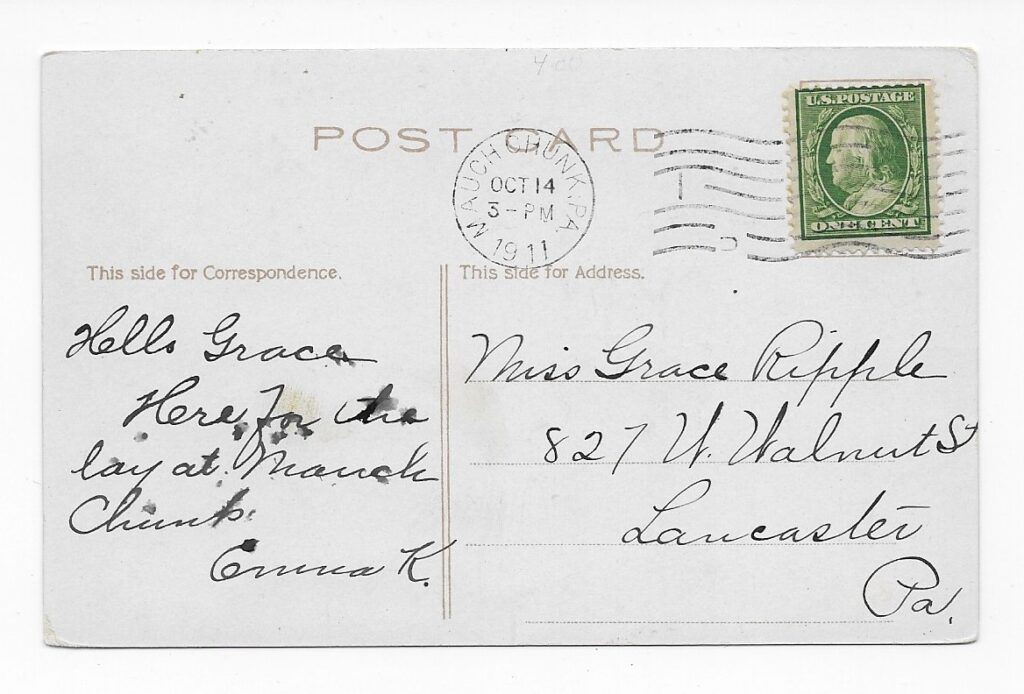 4.00
POST CARD
MAUCH CHUNK, PA.
OCT 14
3-PM
1911
U.S. POSTAGE
ONE CENT
This side for Correspondence.
Hello Grace
Here for the
day at Mauch
Chunk.
Emma K.
This side for Address.
Miss Grace Ripple
827 W. Walnut St
Lancaster
Pa.